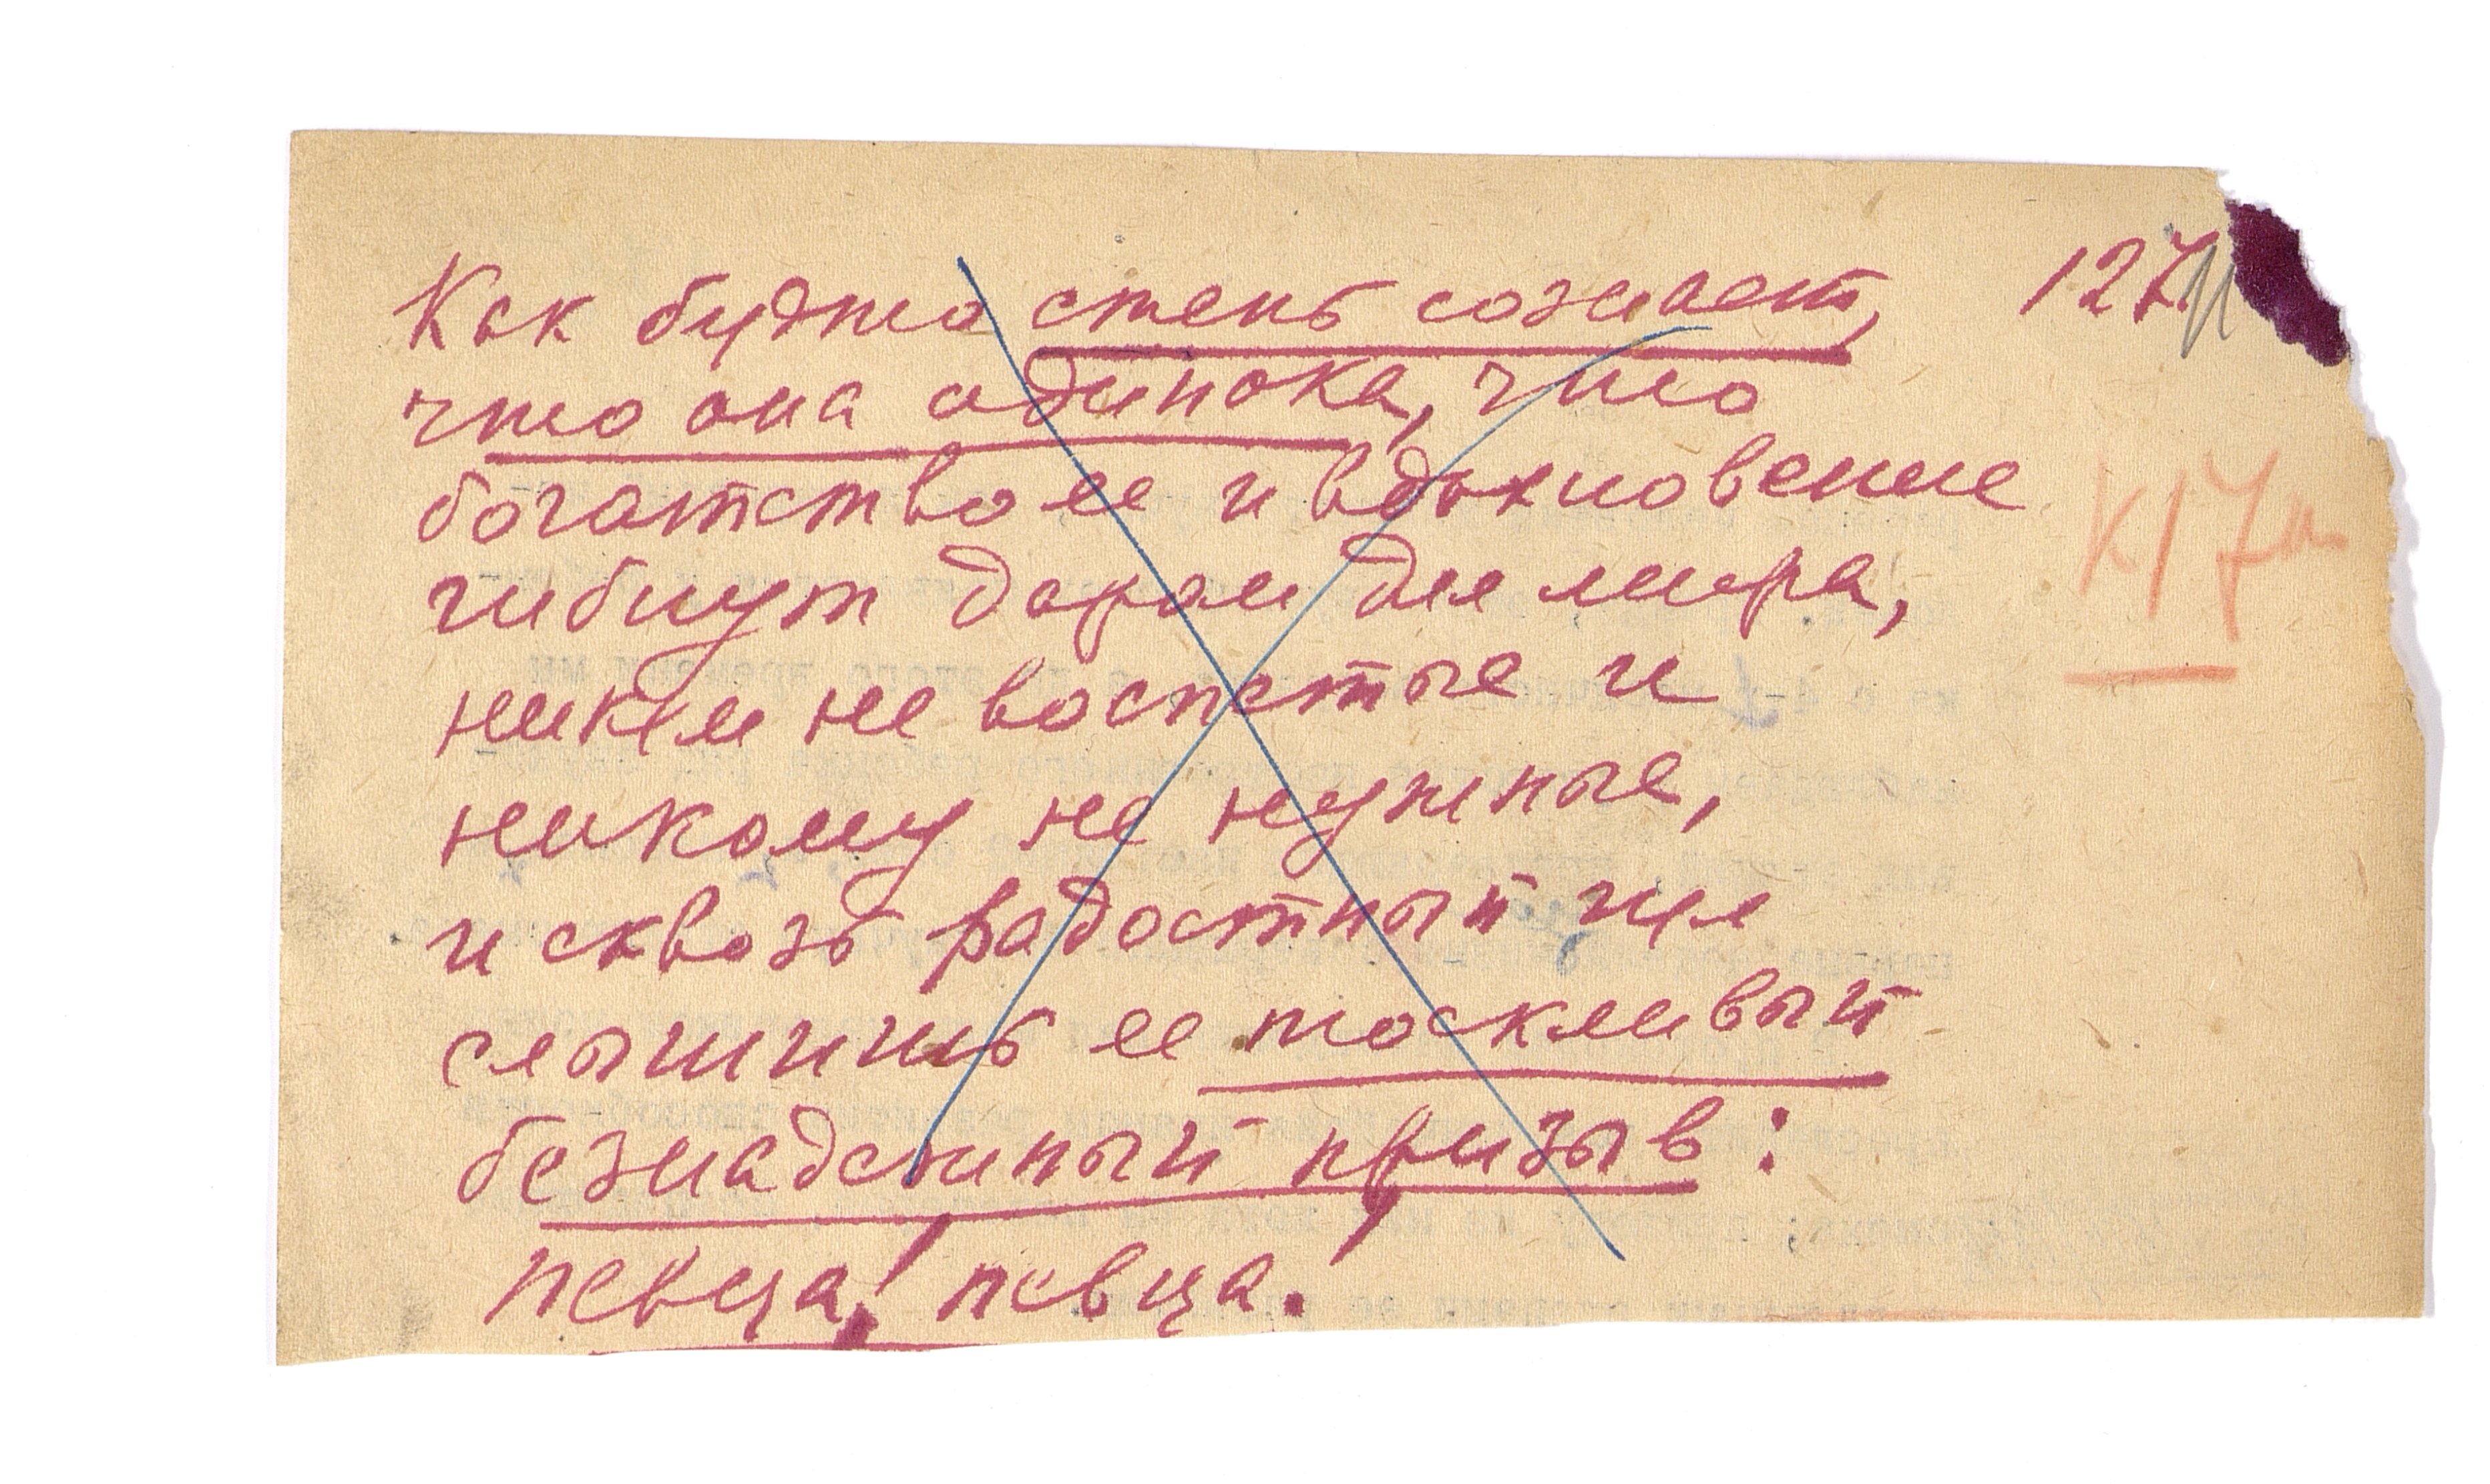 Как будто степь сознает, 127
что она одинока, что
богатство ее и вдохновение
гибнут даром для мира,
никем не воспетые и
никому не нужные,
и сквозь радостный гул
слышишь ее тоскливый
безнадежный призыв:
певца! певца!